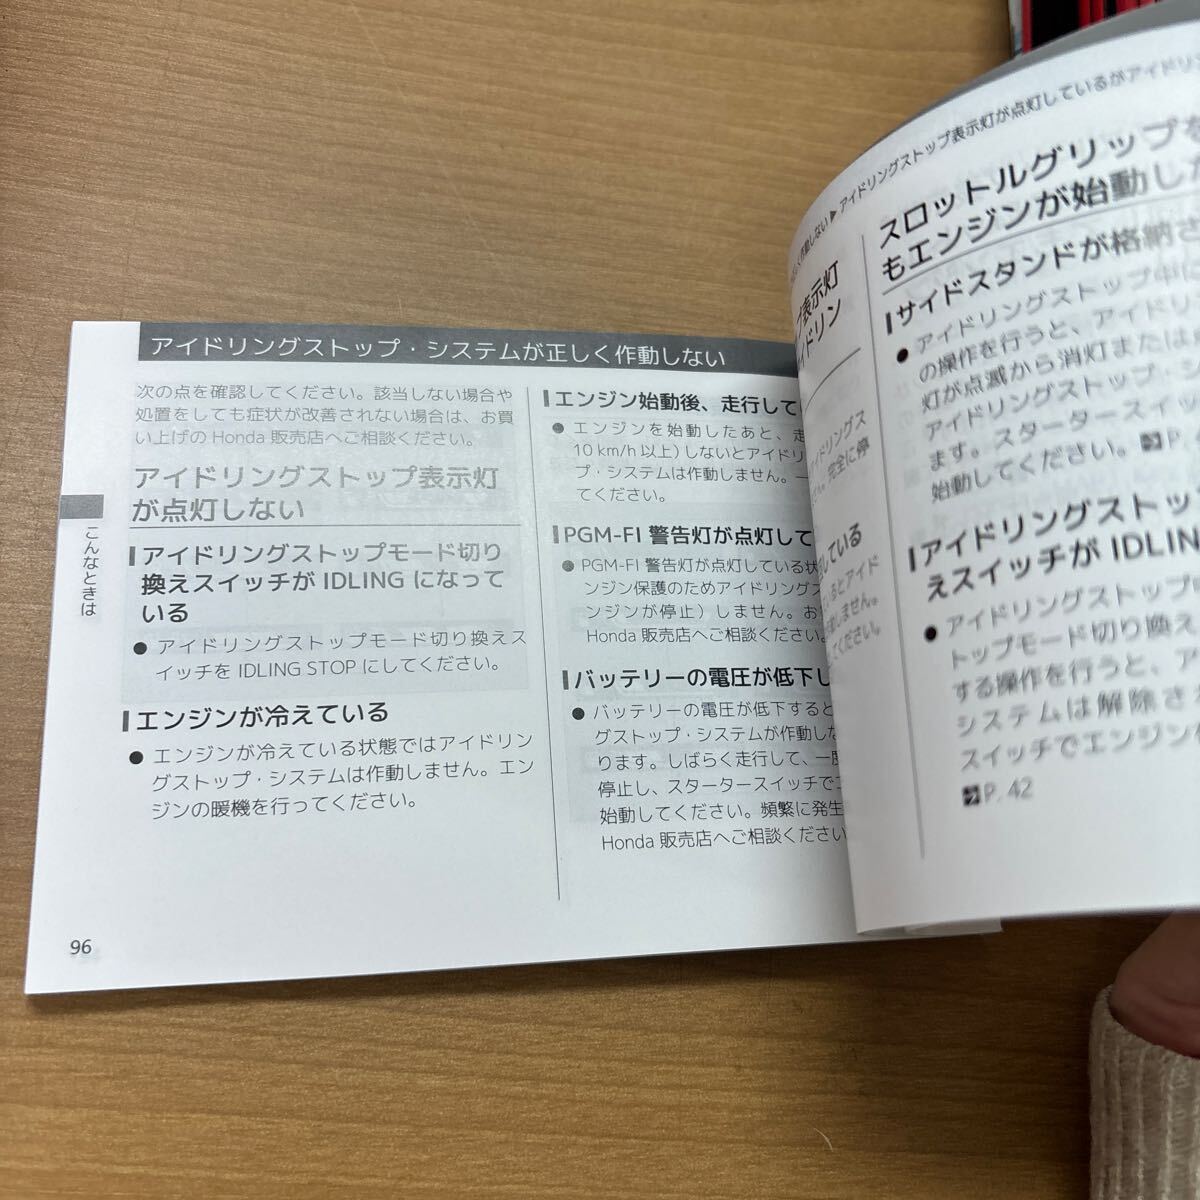 アイドリングストップ・システムが正しく作動しない
次の点を確認してください。該当しない場合や
処置をしても症状が改善されない場合は、お買
い上げの Honda 販売店へご相談ください。
アイドリングストップ表示灯
が点灯しない
アイドリングストップモード切り
換えスイッチが IDLING になって
いる
● アイドリングストップモード切り換えス
イッチを IDLING STOP にしてください。
エンジンが冷えている
● エンジンが冷えている状態ではアイドリン
グストップ・システムは作動しません。エン
ジンの暖機を行ってください。
こんなときは
96
エンジン始動後、走行して
● エンジンを始動したあと、走
10 km/h 以上）しないとアイドリ
プ・システムは作動しません。一
てください。
PGM-FI 警告灯が点灯して
● PGM-FI 警告灯が点灯している状
ンジン保護のためアイドリングス
ンジンが停止）しません。お
Honda 販売店へご相談ください。
バッテリーの電圧が低下し
● バッテリーの電圧が低下すると
グストップ・システムが作動しな
ります。しばらく走行して、一度
停止し、スタータースイッチでエ
始動してください。頻繁に発生
Honda 販売店へご相談ください
プ表示灯
イドリン
イドリングス
完全に停
している
るとアイド
しません。
ください。
作動しない▶アイドリングストップ表示灯が点灯しているがアイドリン
スロットルグリップを
もエンジンが始動した
サイドスタンドが格納さ
● アイドリングストップ中に
の操作を行うと、アイドリ
灯が点滅から消灯または
アイドリングストップ・シ
ます。スタータースイッ
始動してください。 P.
アイドリングストッ
えスイッチが IDLIN
● アイドリングストップ
トップモード切り換え
する操作を行うと、ア
システムは解除さ
スイッチでエンジン
P. 42